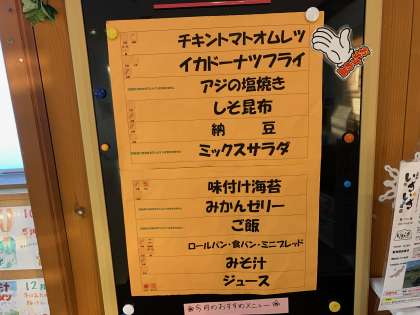 チキントマトオムレツ
イカドーナツフライ
アジの塩焼き
しそ昆布
納　豆
ミックスサラダ
味付け海苔
みかんゼリー
ご飯
ロールパン・食パン・ミニブレッド
みそ汁
ジュース
今月のおすすめメニュー